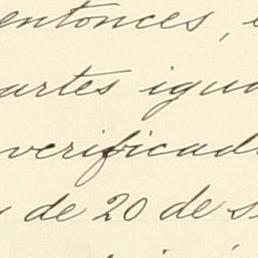 entonces,
artes igua
verificad
de 20 de s